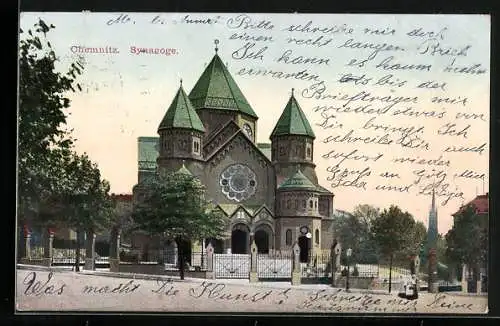 Chemnitz. Synagoge.
Bitte schreibe mir doch
einen recht langen Brief
Ich kann es kaum mehr
erwarten, bis der
Briefträger mir
wieder etwas von
Dir bringt. Ich
schreibe Dir auch
sofort wieder
Gruß an
und
Was macht Die Kunst?
schreibe mir Deine
Hausnummer